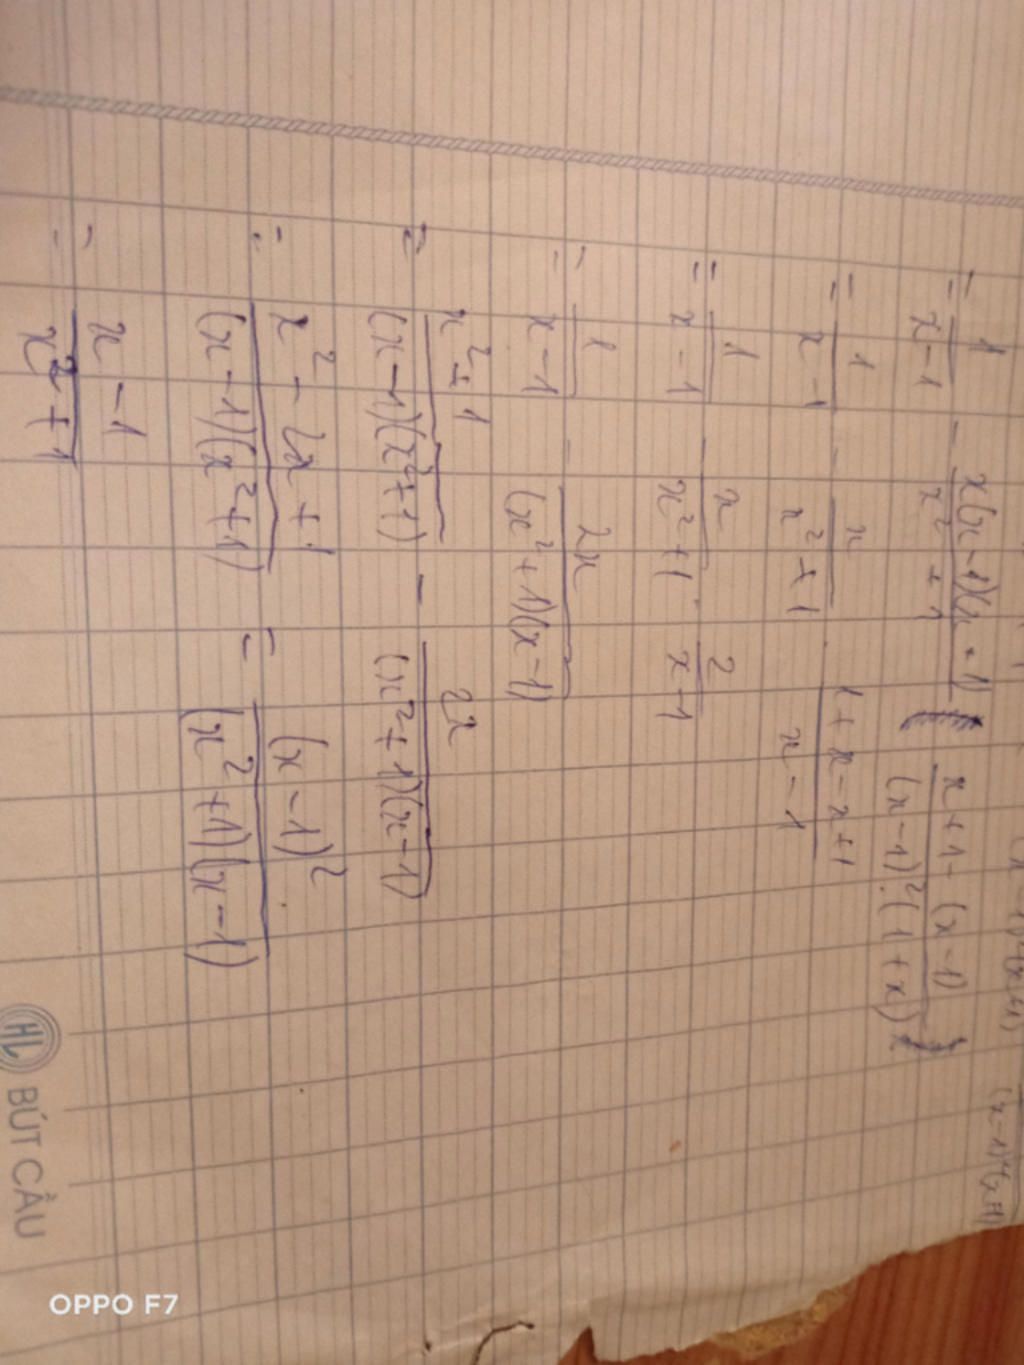 (x-1)²(x+1) (x-1)²(x+1)
= 1/(x-1) - x(x-1)(x+1)/(x²+1) (x+1-(x-1))/((x-1)².(1+x))
= 1/(x-1) - x/(x²+1) . (1+x-x+1)/(x-1)
= 1/(x-1) - x/(x²+1) . 2/(x-1)
= 1/(x-1) - 2x/((x²+1)(x-1))
= (x²+1)/((x-1)(x²+1)) - 2x/((x²+1)(x-1))
= (x²-2x+1)/((x-1)(x²+1)) = (x-1)²/((x²+1)(x-1))
= (x-1)/(x²+1)
HL BÚT CẦU
OPPO F7